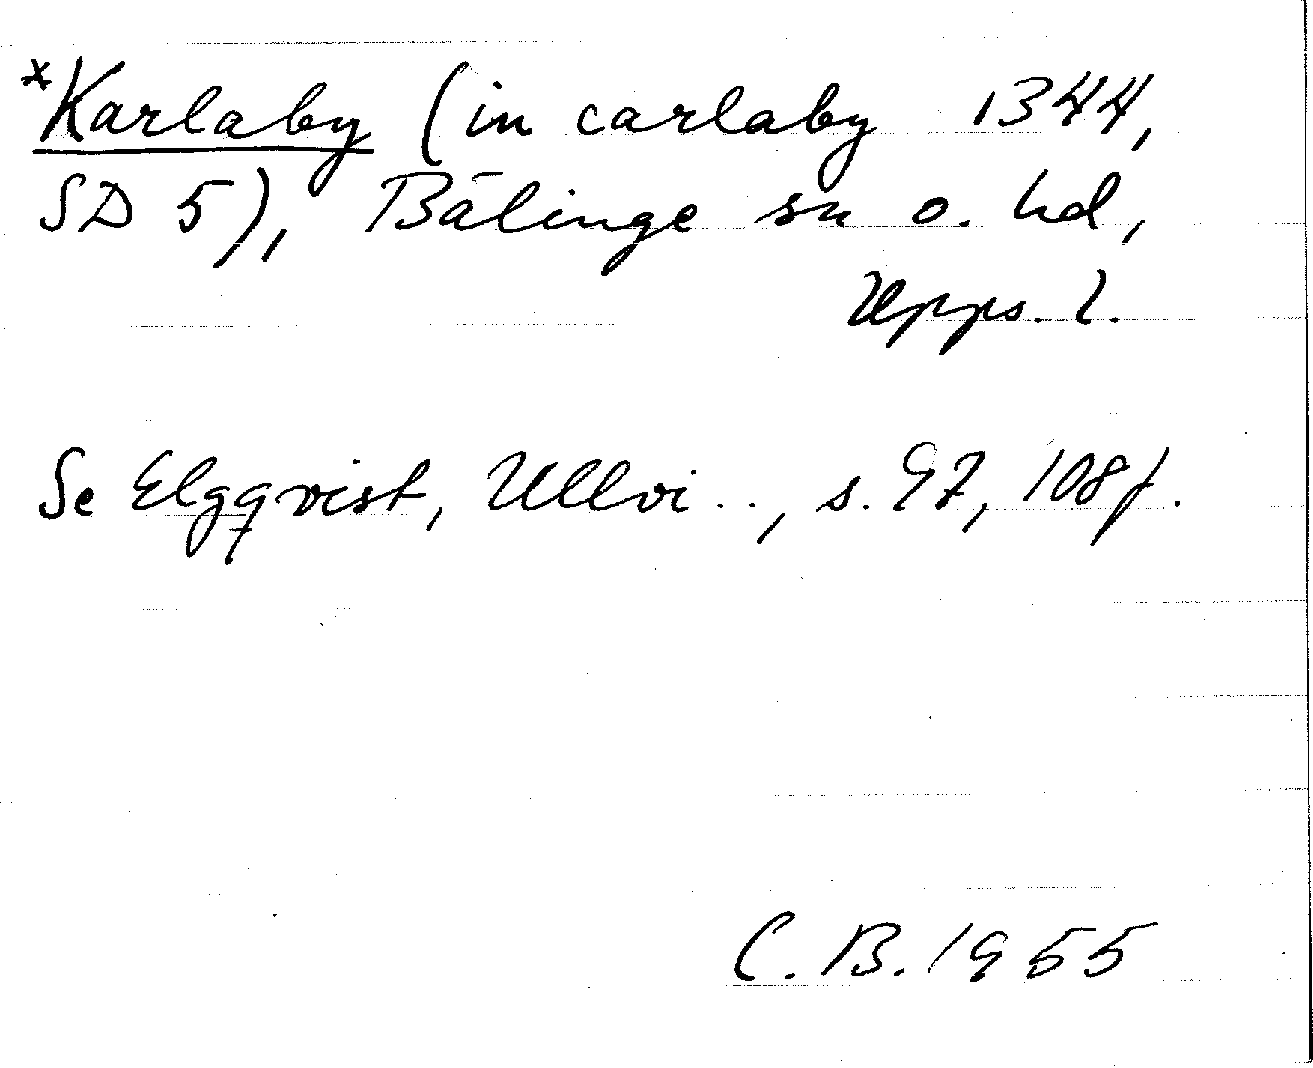 *Karlaby (in carlaby 1344,
SD 5), Bälinge sn o. hd,
Upps. l.
Se Elgqvist, Ullvi .., s. 97, 108f.
C. B. 1955